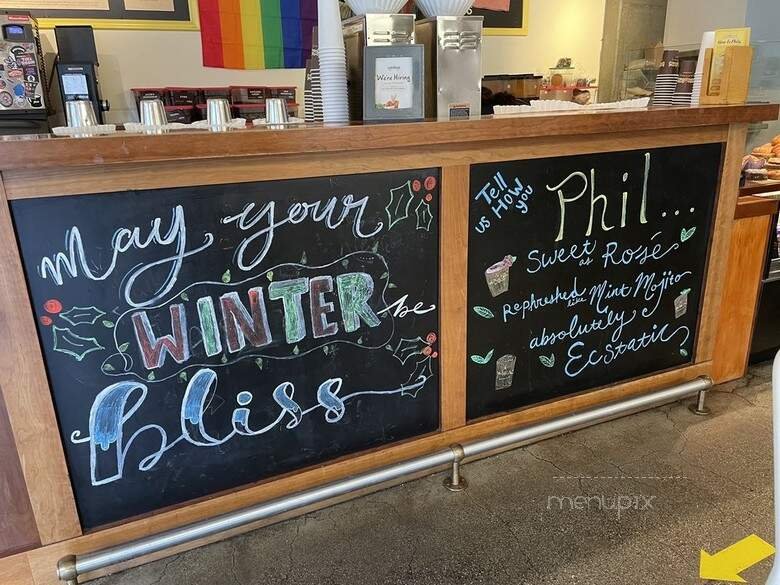 We're Hiring
May your
WINTER
be
bliss
Tell
us How
you
Phil...
Sweet as Rosé
Rephreshed like Mint Mojito
absolutely
Ecstatic
menupix